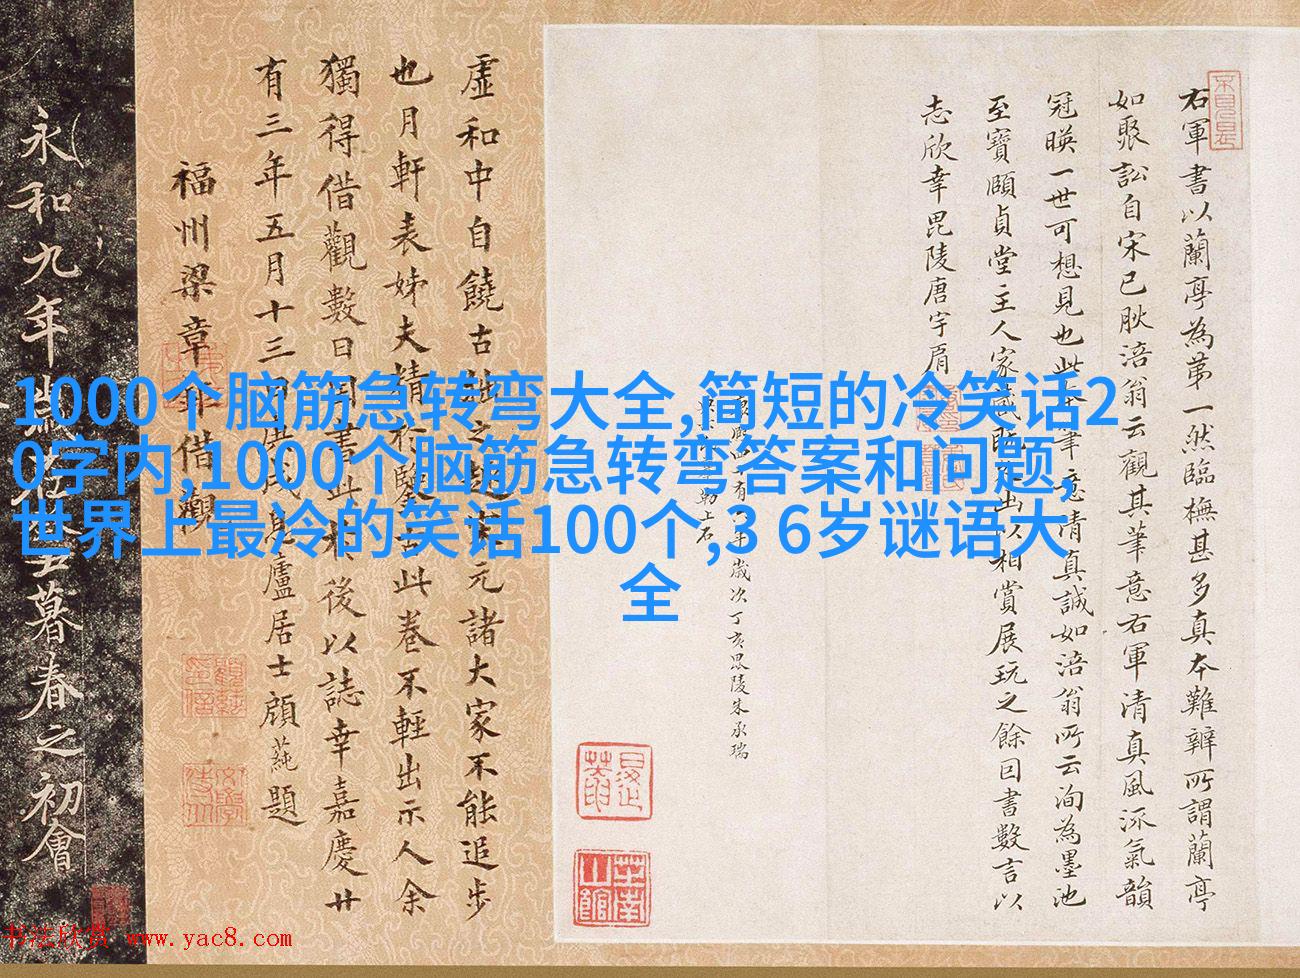 右軍書以蘭亭為第一然臨橅甚多真本難辨所謂蘭亭
如聚訟自宋已
涪翁云觀其筆意右軍清真風流氣韻
冠暎一世可想見也此
筆意清真誠如涪翁所云洵為墨池
至寶頤貞堂主人家藏
出以相賞展玩之餘因書數言以
志欣幸毘陵唐宇肩
歲次丁亥毘陵朱承瑞
虛和中自饒古
元諸大家不能追步
也月軒表姊夫精
此卷不輕出示人余
獨得借觀數日
後以誌幸嘉慶廿
有三年五月十三日
廬居士顧蒓題
福州梁章鉅借觀
永和九年
暮春之初會
1000个脑筋急转弯大全,简短的冷笑话2
0字内,1000个脑筋急转弯答案和问题,
世界上最冷的笑话100个,3 6岁谜语大
全
书法欣赏 www.yac8.com